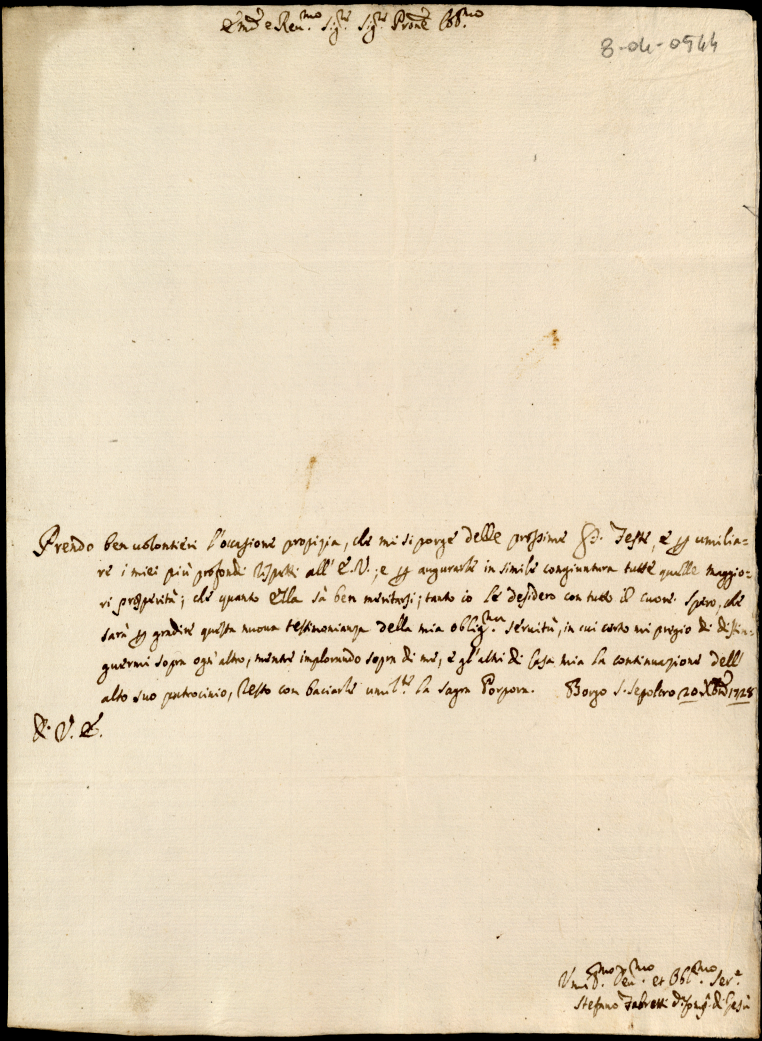 Em.º e Reu.mo Sig.re Sig.re Prone Col.mo
8-04-0544
Prendo ben uolontieri l'occasione propizia, che mi si porge delle prossime SS. Feste, e p umilia=
re i miei più profondi rispetti all' E.V.; e p augurarle in simile congiuntura tutte quelle maggio=
ri prosperità; che quanto Ella sà ben meritarsi; tanto io le desidero con tutto il cuore. Spero, che
sarà p gradire questa nuoua testimonianza della mia oblig.ma seruitù, in cui certo mi pregio di distin=
guermi sopra ogn' altro, mentre implorando sopra di me, e gl'altri di Casa mia la continuazione dell'
alto suo patrocinio, resto con baciarle umil.te la sagra Porpora. Borgo S. Sepolcro 20 Xbre 1728
D. V. E.
Umil.mo Deu.mo et Obl.mo Ser.e
Stefano Fabretti di Gesù